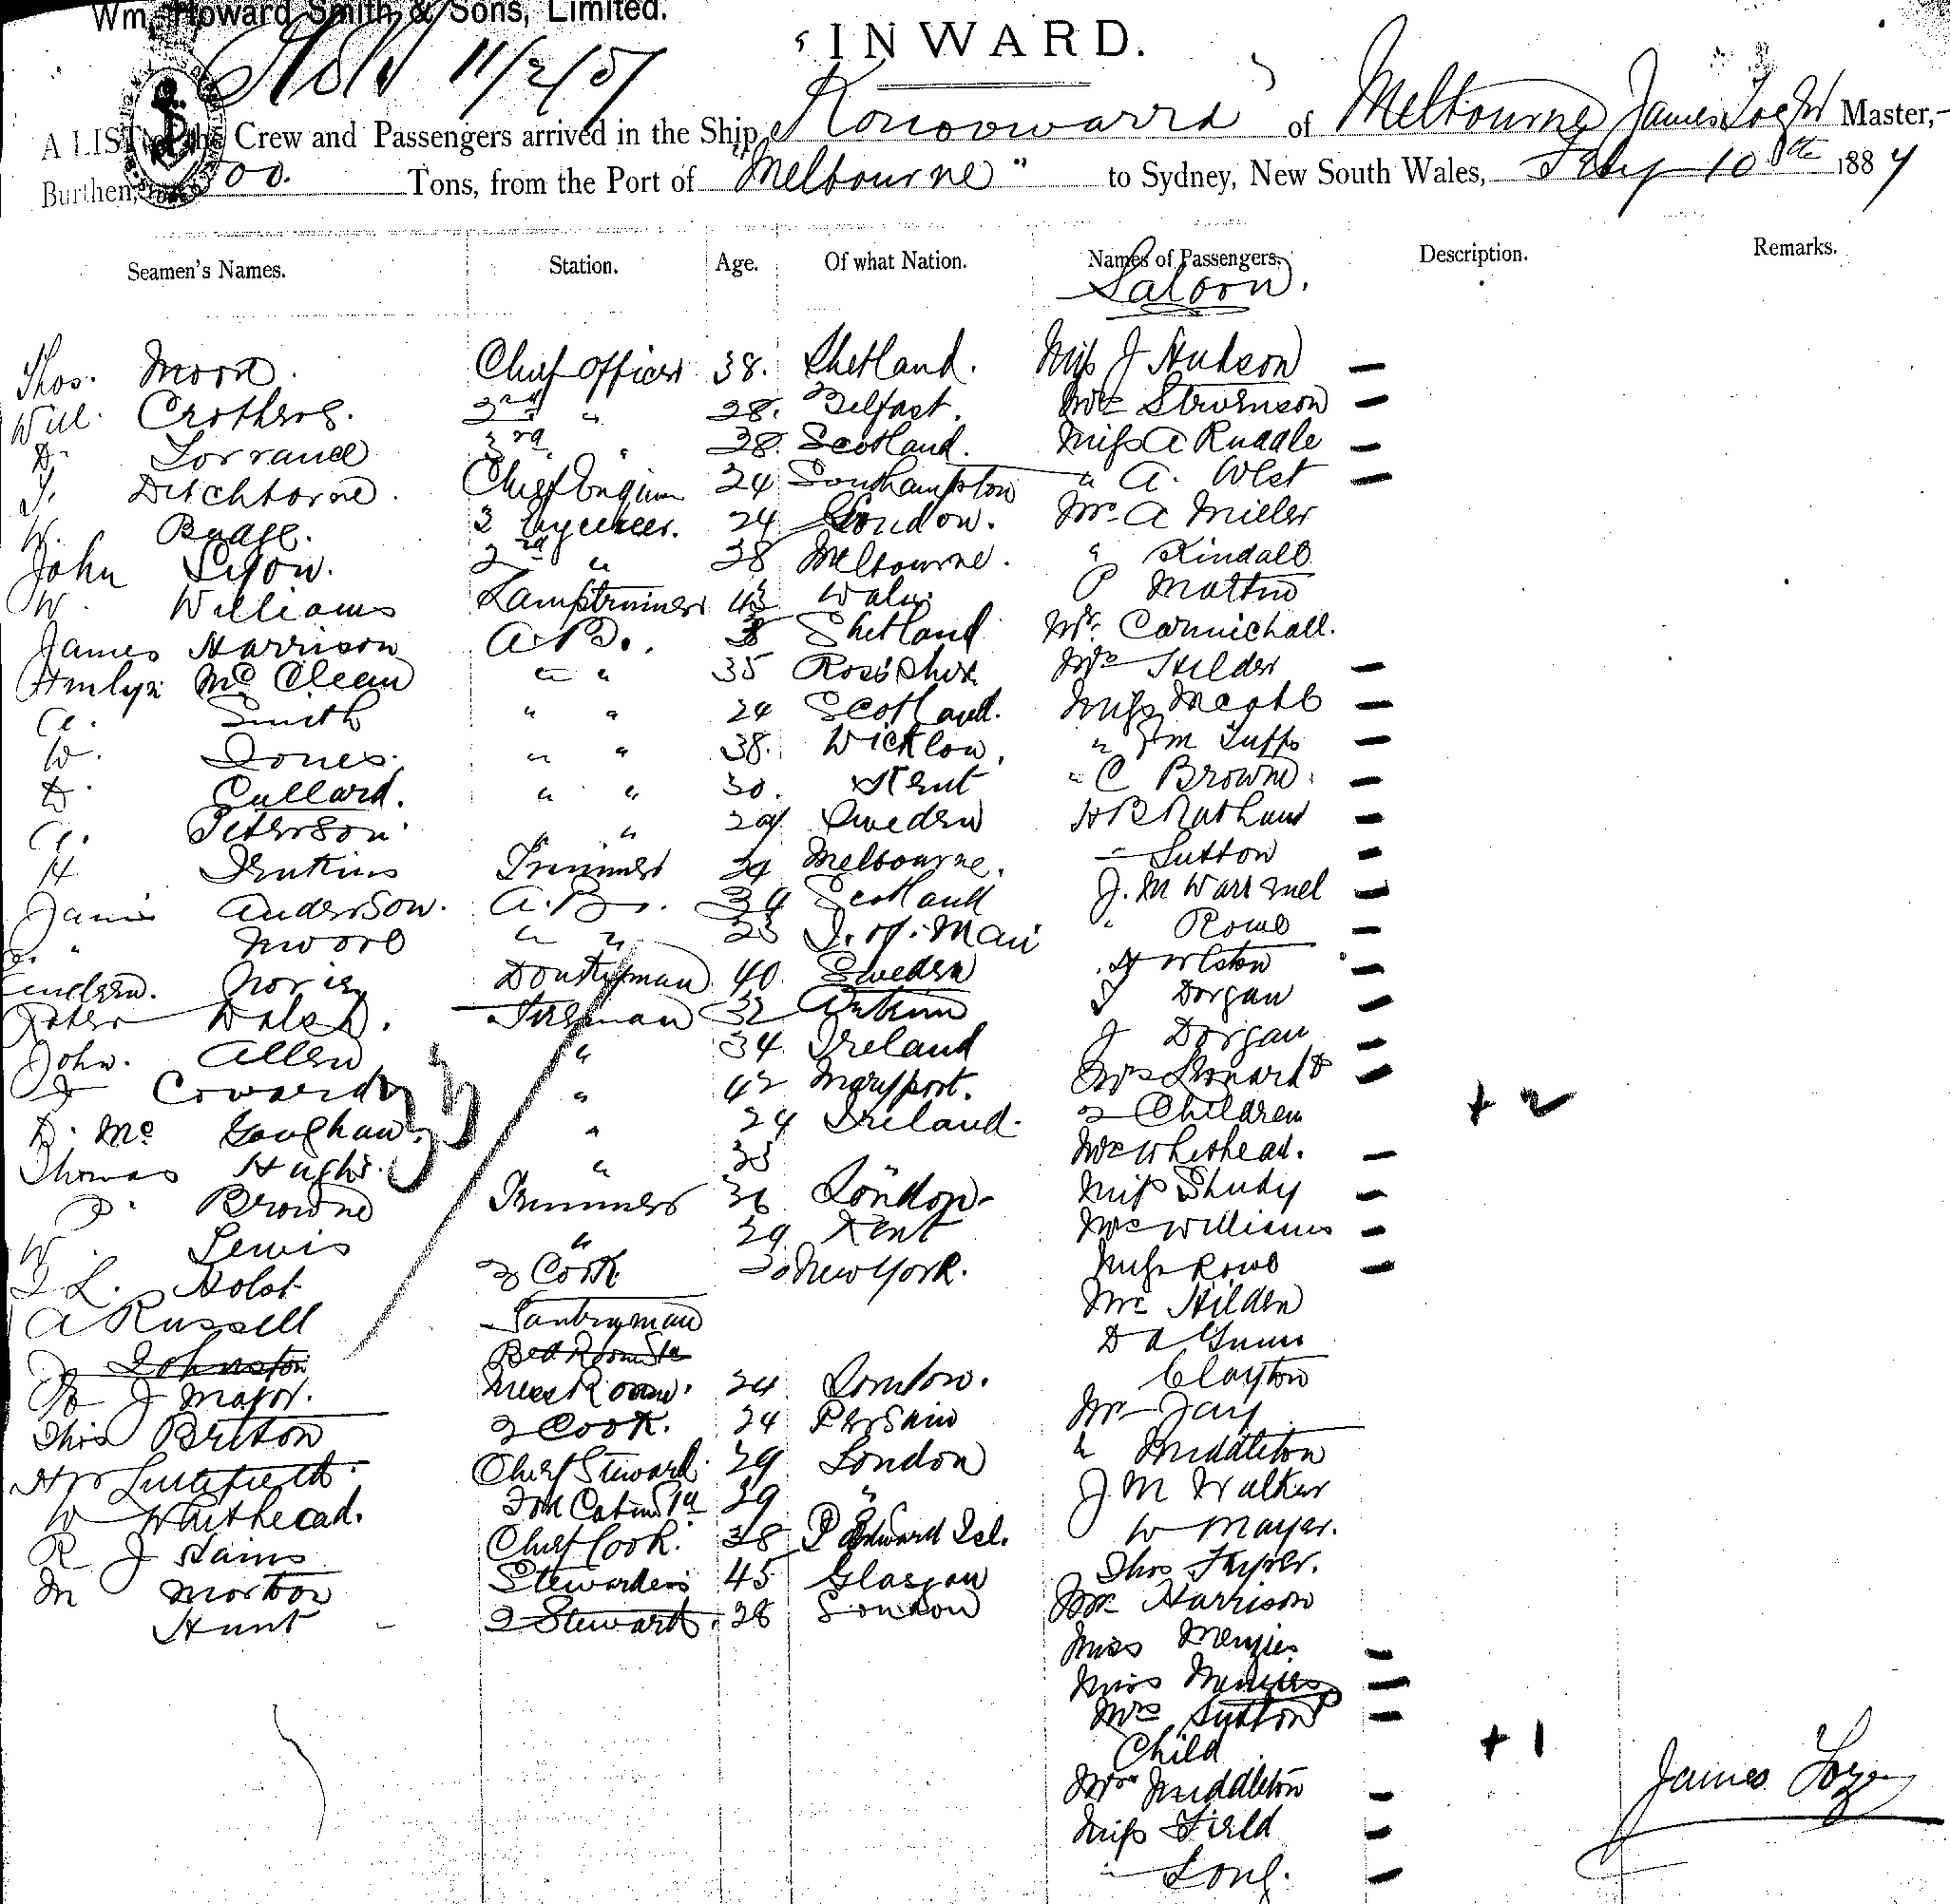 Wm. Howard Smith & Sons, Limited.
INWARD.
11/2/87
A LIST of the Crew and Passengers arrived in the Ship Konoowarra of Melbourne, James Master,
Burthen, 00. Tons, from the Port of "Melbourne" to Sydney, New South Wales, Feby 10th 1887
Seamen's Names. Station. Age. Of what Nation. Names of Passengers. Description. Remarks.
Saloon.
Thos. Chief Officer 38. Shetland. Miss J Hudson
Will. Crothers. 2nd " 28. Belfast. Mrs Stevenson
D. Torrance 3rd " 28. Scotland. Miss A Ruddle
T. Ditchborne. Chief Engineer 24 Southampton " A. West
W. Budge. 3 Engineer. 24 London. Mr A Miller
John Lyon. 2nd " 38 Melbourne. " Kindall
W. Williams Lamptrimmer 43 Wales P Mattin
James Harrison A.B. Shetland Mr. Carmichall.
McClean " " 35 Rossshire Mrs Hilder
A. Smith " " 24 Scotland. Miss
W. Jones. " " 38. Wicklow. " Tuffs
D. Cullard. " " 30. Kent " C Browne.
A. Peterson. " " 29 Sweden H B Nathan
H Jenkins Trimmer 24 Melbourne. " Sutton
James Anderson. A.B. 34 Scotland J. M
" Moore " " 23 I. of. Man " Rowe
40. Sweden
Peter Walsh. Fireman 32 Antrim J Dorgan
John. Allen " 34 Ireland J Dorgan
Coward " 42 Maryport. Mrs Leonard &
D. Mc Goughan " 24 Ireland. 2 Children + 2
Thomas Hughs. " 35 Mrs Whithead.
P. Browne Trimmers 36 London Miss Shudy
W. Lewis " 29 Kent Mrs Williams
L. Holst 2 Cook 30 New York. Miss Rowe
A Russell Pantryman Mr Hilden
Johnston Bed Room Sta D A Gunn
J Major. Mess Room. 24 London. Clayton
Thos Briton 2 Cook. 24 Mr Jay
H W Chief Steward. 29 London " Middleton
W Whithead. Fore Cabin Sta 29 " J M Walker
R J Hains Chief Cook. 38 P Edward Isl. W Mayer.
M Morton Stewardess 45 Glasgow Thos
Hunt 2 Steward. 28 London Mr Harrison
Miss Menzies
Miss Menzies
Mrs Sutton &
Child + 1
Mrs Middleton
Miss Field
" Long.
James